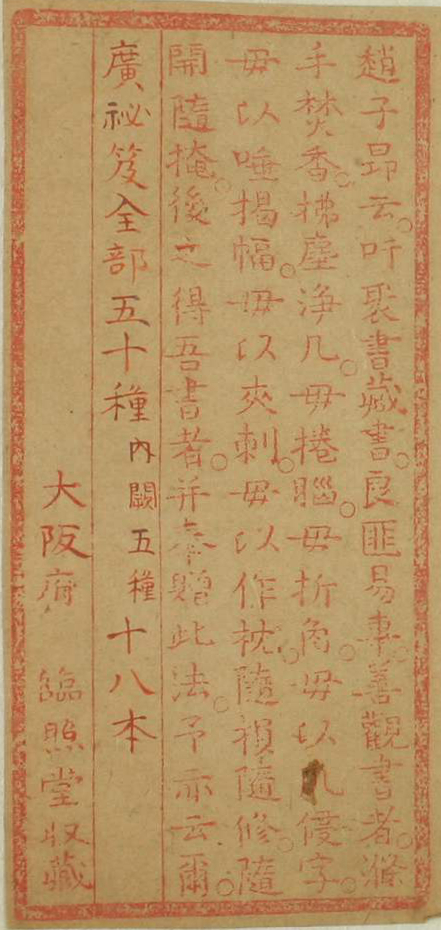 趙子昻云。吁聚書藏書。良匪易事。善觀書者。滌
手焚香。拂塵淨几。毋捲腦。毋折角。毋以爪侵字。
毋以唾揭幅。毋以夾刺。毋以作枕。隨損隨修。隨
開隨掩。後之得吾書者。并奉贈此法。予亦云爾。
廣祕笈全部五十種內闕五種十八本
大阪府 臨照堂収藏